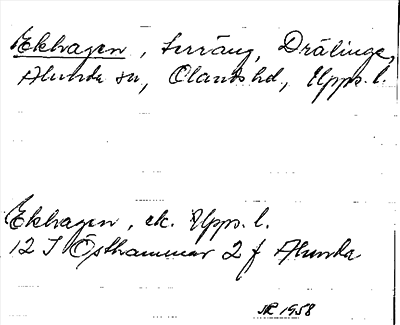 Ekhagen, terräng, Drälinge,
Alunda sn, Olands hd, Upps. l.
Ekhagen, ek. Upps. l.
12 I Östhammar 2 f Alunda
NR 1958